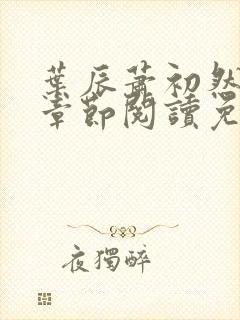 葉辰蕭初然
章節閱讀免
夜獨醉